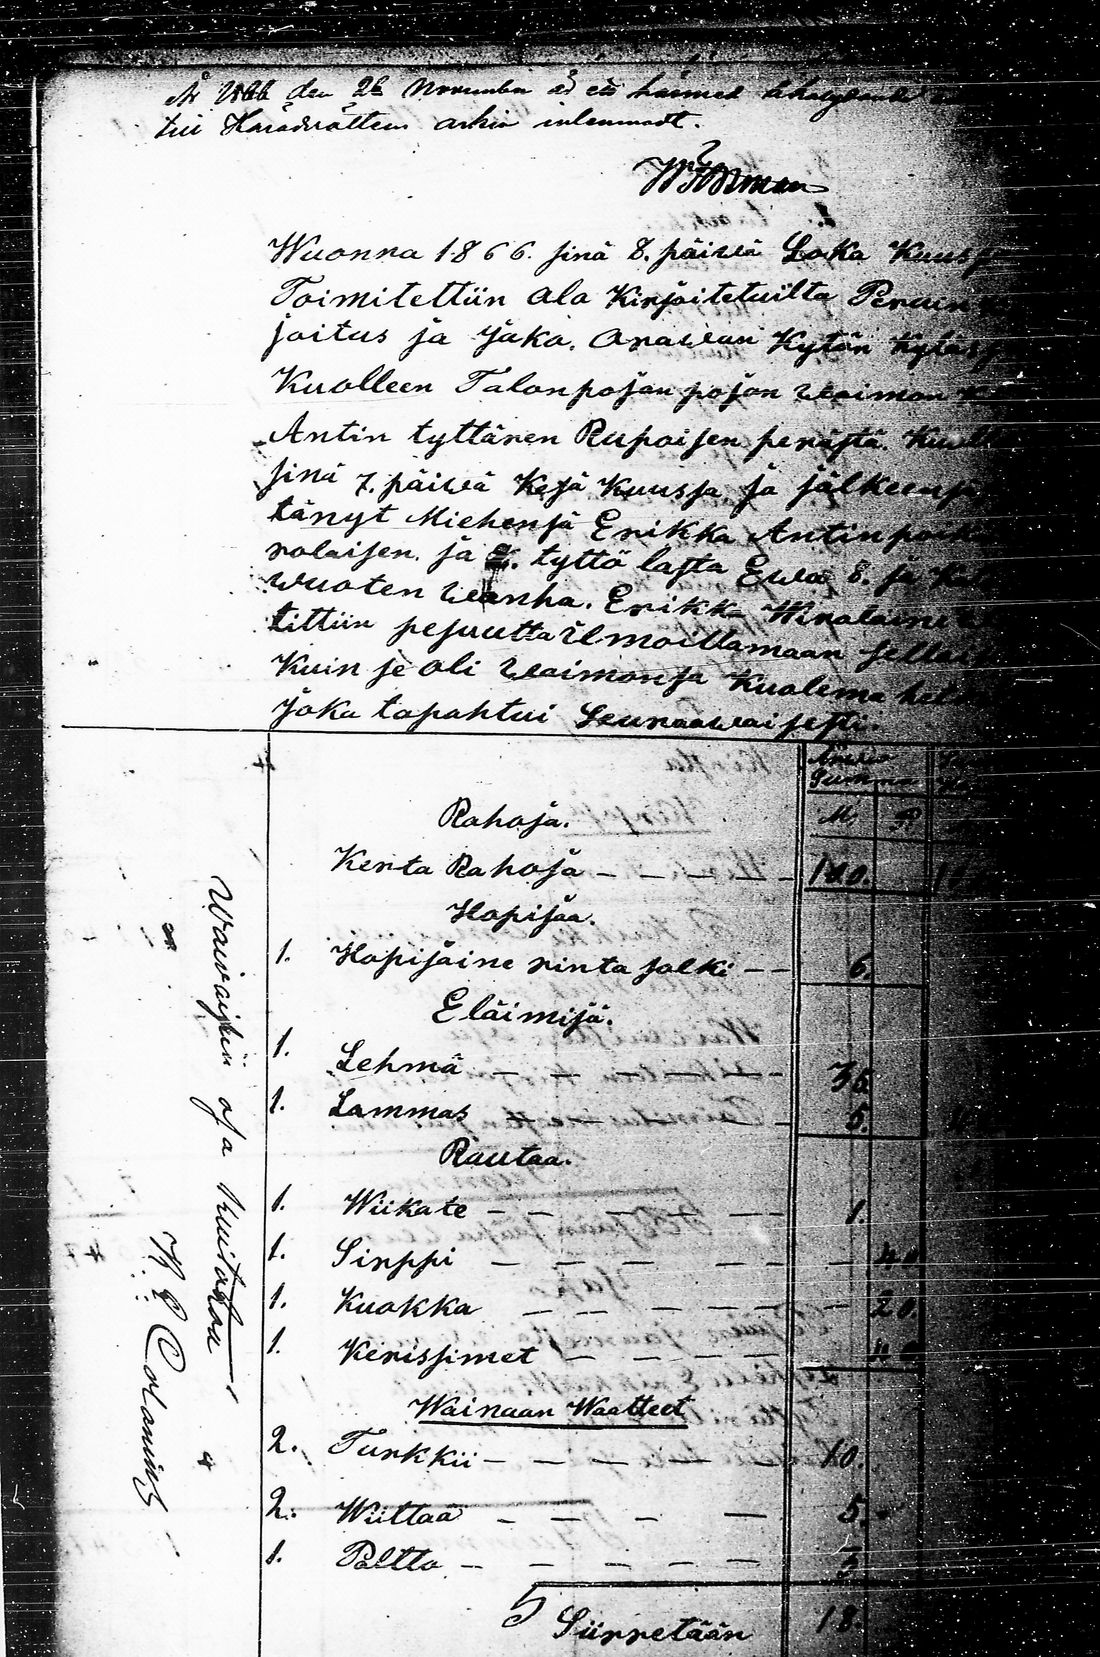 År 1866 den 26 November
till Häradsrättens arkiv inlemnadt.
Wuonna 1866. sinä 8. päiwä Loka Kuus
Toimitettiin ala Kirjoitetuilta Perun
joitus ja Jako. Arawan Kytön Kyläs
Kuolleen Talonpojan pojan waimon
Antin tyttären Rupoisen perästä. Kuoll
sinä 7. päiwä Kesä Kuussa ja jälkeens
tänyt Miehensä Erikka Antinpoika
rolaisen. ja 2. tyttö lasta Ewa 8. ja
wuoten wanha. Erikk Wirolaine
tittiin pesuutta ilmoittamaan sellai
Kuin se oli waimonsa Kuolema het
Joka tapahtui Seuraawaisesti.
Arwio
Summa
M. P
Rahoja.
Kerta Rahoja — — — — 100.
Hopijaa.
1. Hopijaine rinta solki — — 6.
Eläimijä.
1. Lehmä — — — — — 35
1. Lammas — 5.
Rautaa.
1. Wiikate — — — — 1.
1. Sirppi — — — — — 40
1. Kuokka — — — — — — 20.
1. Kerissimet — — — — —
Wainaan Waatteet
2. Turkkii — — — — — 10.
2. Wiittaa — — — — 5.
1. Paltto — — — — — 3
5 Siirretään 18.
Waiwaistin osa kuitataa